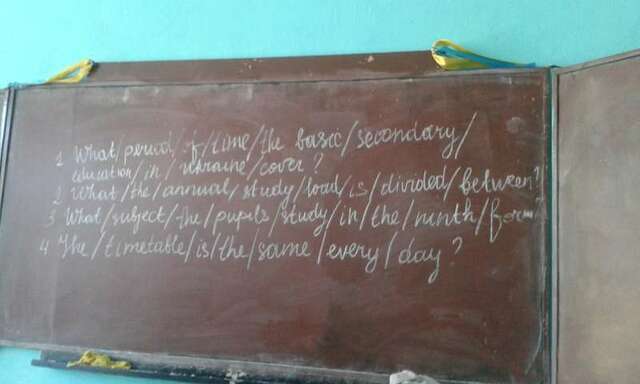 1 What/period/of/time/the basic/secondary/
education/in/Ukraine/cover?
2 What/the/annual/study/load/is/divided/between?
3 What/subject/the/pupils/study/in/the/ninth/form?
4 The/timetable/is/the/same/every/day?